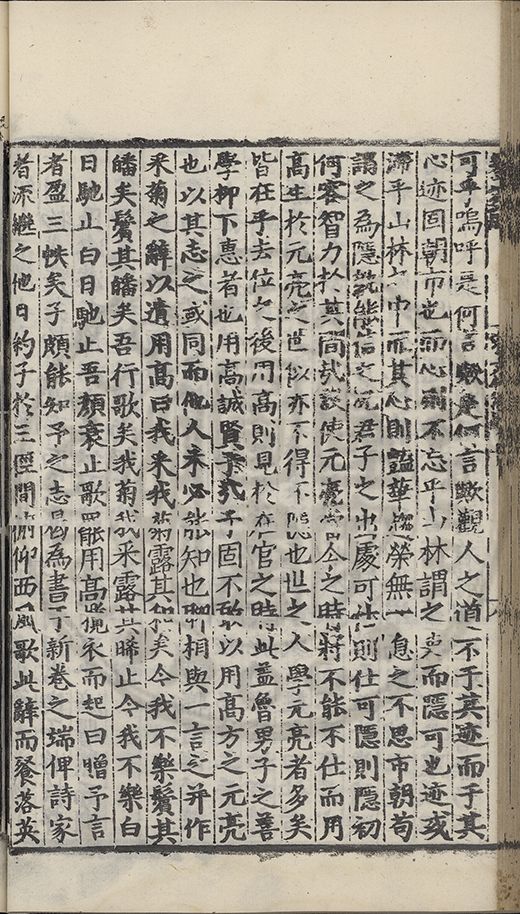 可乎嗚呼是何言歟是何言歟觀人之道不于其迹而于其
心迹固朝市也而心則不忘乎山林謂之吏而隱可也迹或
滯乎山林之中而其心則謟華趨榮無一息之不思市朝苟
謂之為隱孰能信之況君子之出處可仕則仕可隱則隱初
何容智力於其間哉設使元亮當今之時將不能不仕而用
高生於元亮之世似亦不得不隱也世之人學元亮者多矣
皆在乎去位之後用高則見於在官之時此益魯男子之善
學柳下惠者也用高誠賢乎哉予固不敢以用高方之元亮
也以其志之或同而他人未必能知也聊相與一言之并作
采菊之辭以遺用高曰我采我菊露其
矣今我不樂鬢其
皤矣鬢其皤矣吾行歌矣我菊我采露其晞止今我不樂白
日馳止白日馳止吾顏衰止歌罷用高攬衣而起曰贈予言
者盈三帙矣子頗能知予之志曷為書于新卷之端俾詩家
者流繼之他日約子於三徑間俯仰西風歌此辭而餐落英